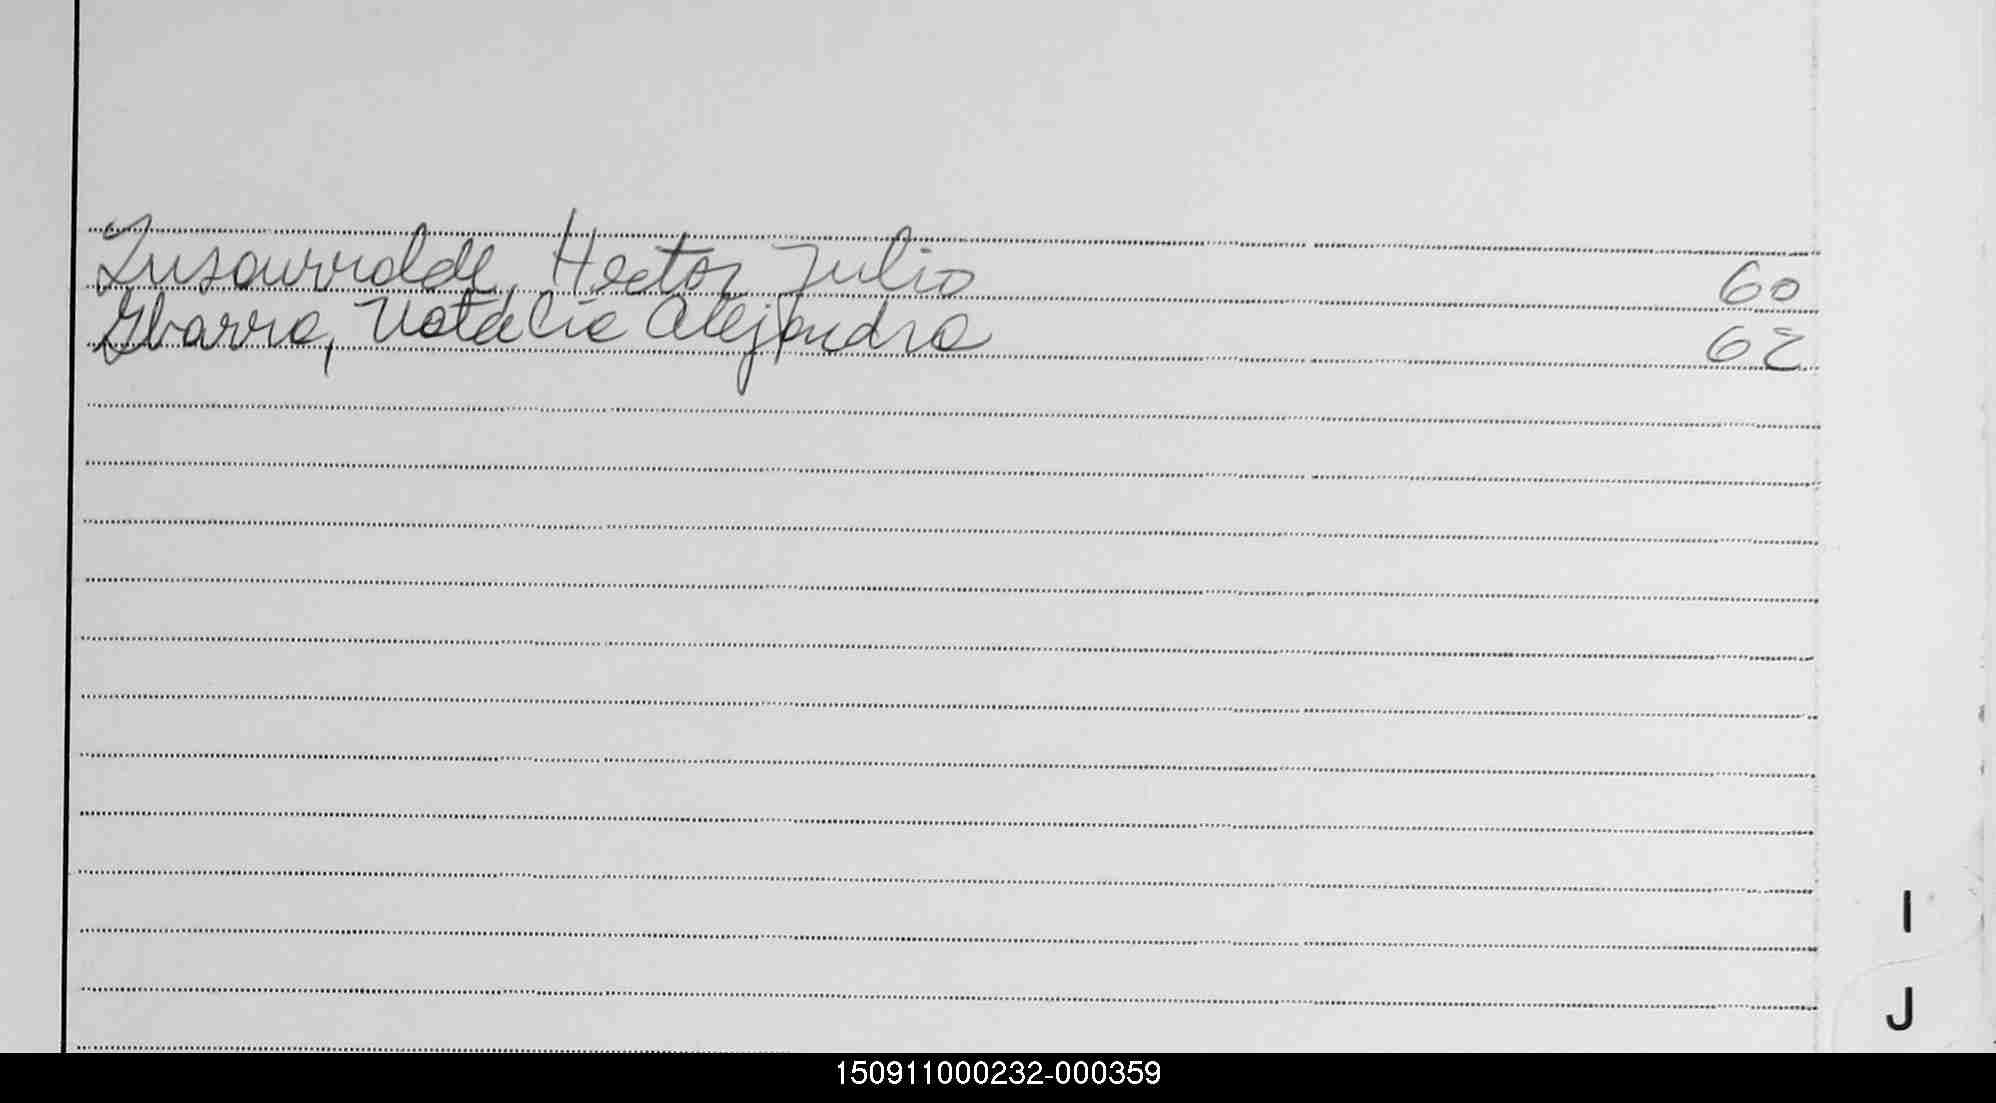 Insaurralde, Hector Julio 60
Ibarra, Natalia Alejandra 62
I
J
150911000232-000359